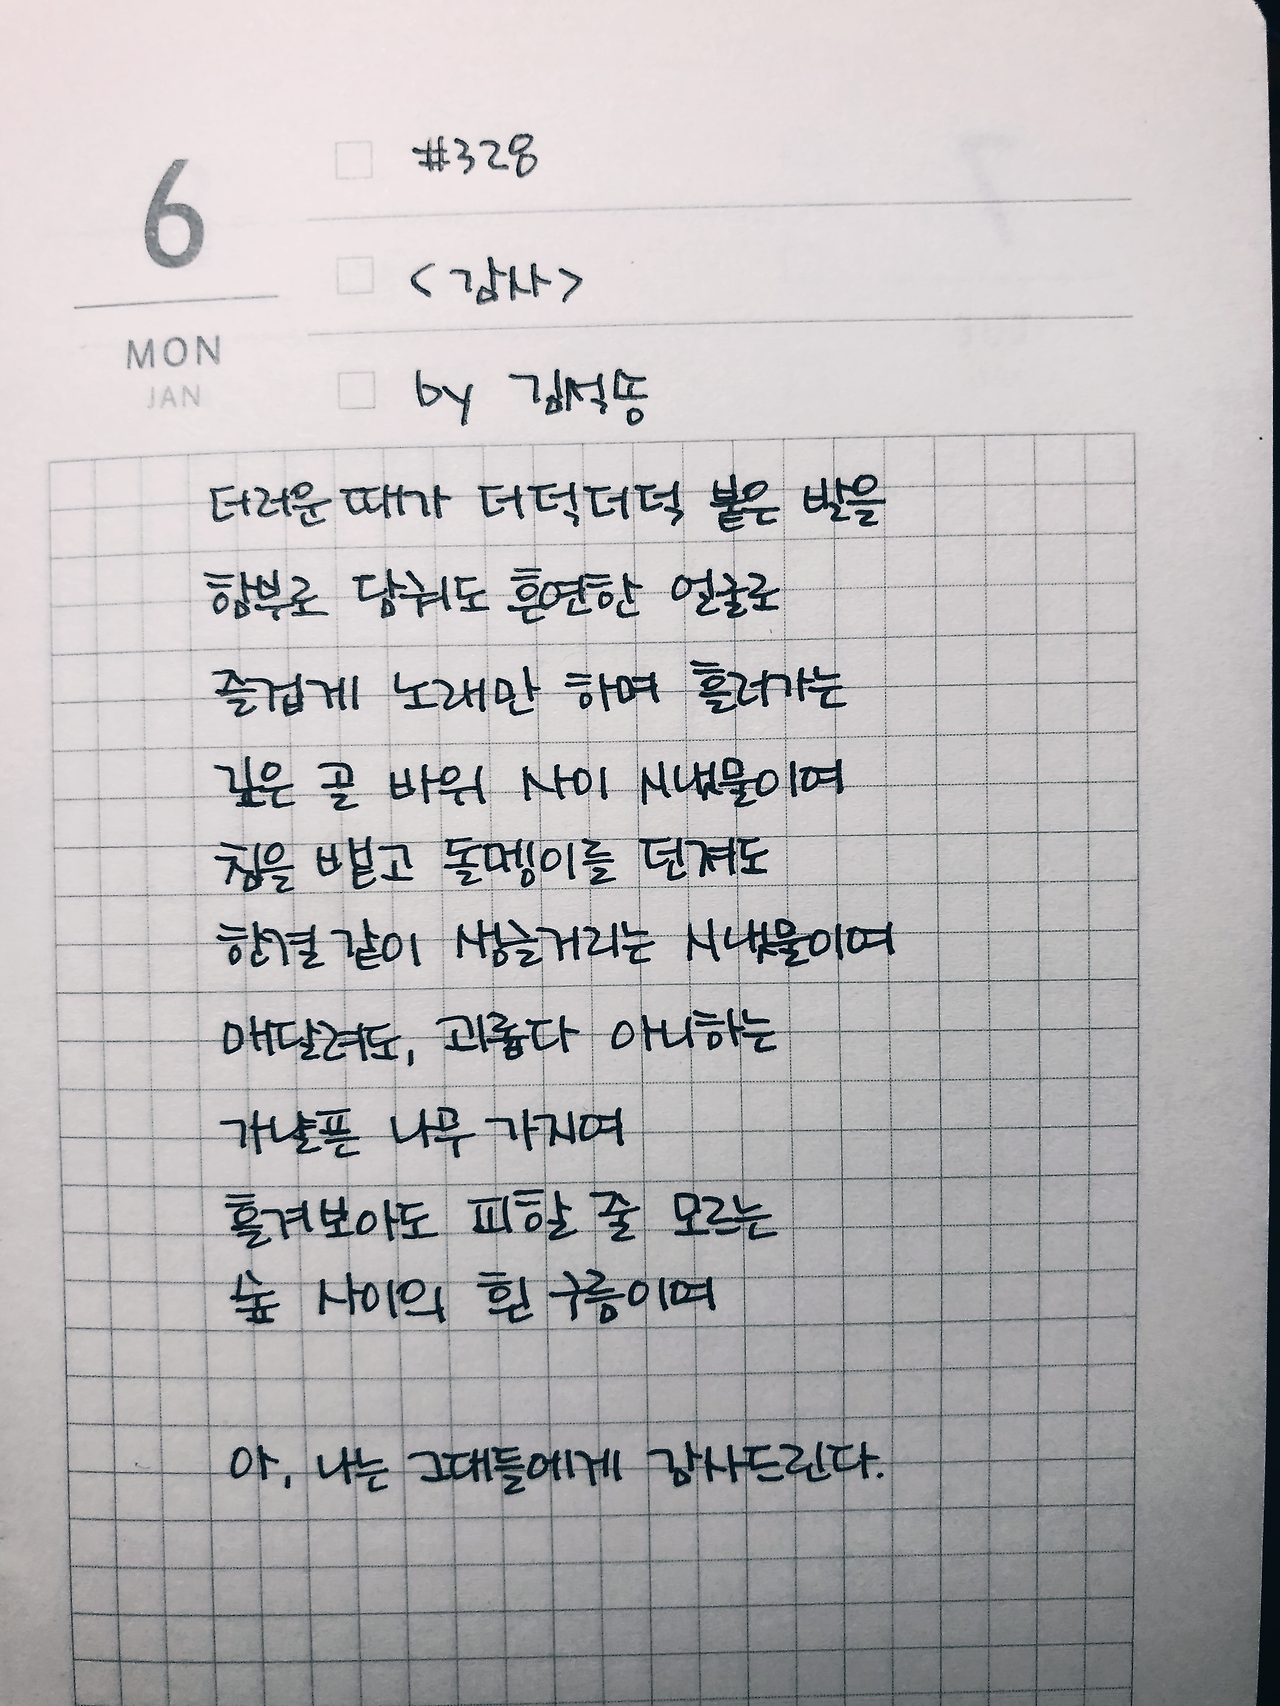 6
MON
JAN
#328
<감사>
by 김석똥
더러운 때가 더덕더덕 붙은 발을
함부로 담궈도 훈연한 얼굴로
즐겁게 노래만 하며 흘러가는
깊은 골 바위 사이 시냇물이여
침을 뱉고 돌멩이를 던져도
한결 같이 생글거리는 시냇물이여
매달려도, 괴롭다 아니하는
가냘픈 나무 가지여
흘겨보아도 피할 줄 모르는
숲 사이의 흰 구름이여
아, 나는 그대들에게 감사드린다.